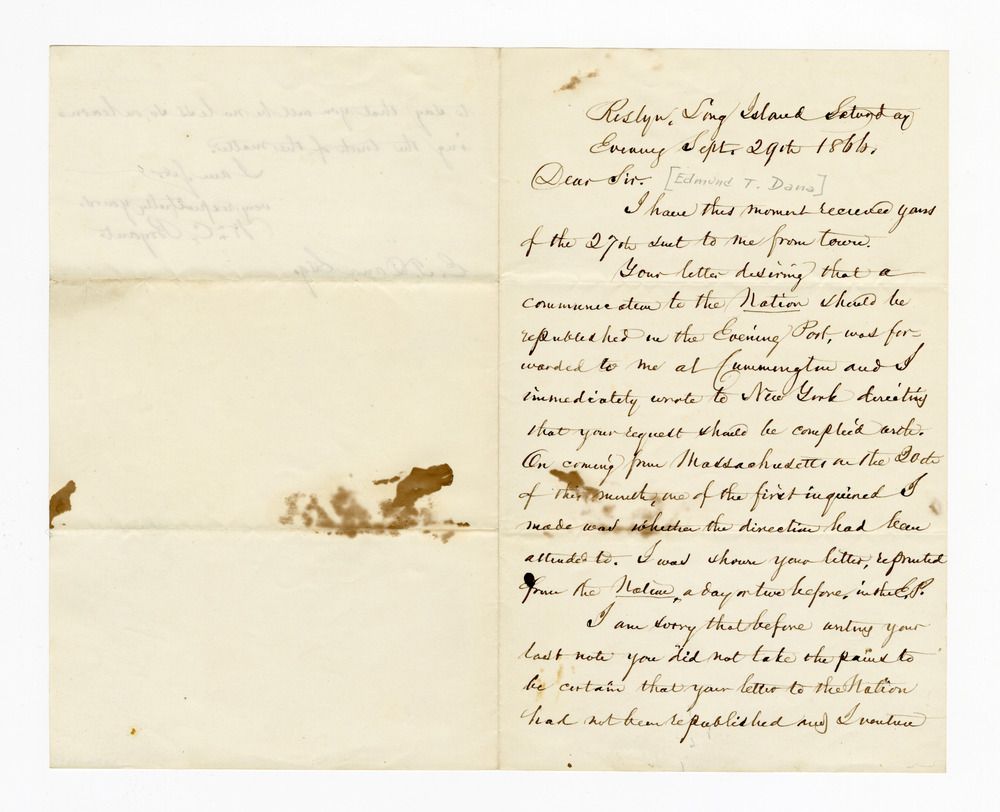 Roslyn, Long Island Saturday
Evening Sept. 29th 1866.
Dear Sir. [Edmund T. Dana]
I have this moment received yours
of the 27th sent to me from town.
Your letter desiring that a
communication to the Nation should be
republished in the Evening Post, was for-
warded to me at Cummington and I
immediately wrote to New York directing
that your request should be complied with.
On coming from Massachusetts on the 20th
of this month, one of the first inquiries I
made was whether the direction had been
attended to. I was shown your letter, reprinted
from the Nation, a day or two before, in the E.P.
I am sorry that before writing your
last note you did not take the pains to
be certain that your letter to the Nation
had not been republished and I venture
to say that you will be no less so on learn
ing the truth of the matter.
I am sir
very respectfully yours
W. C. Bryant
E. T. Dana Esq.